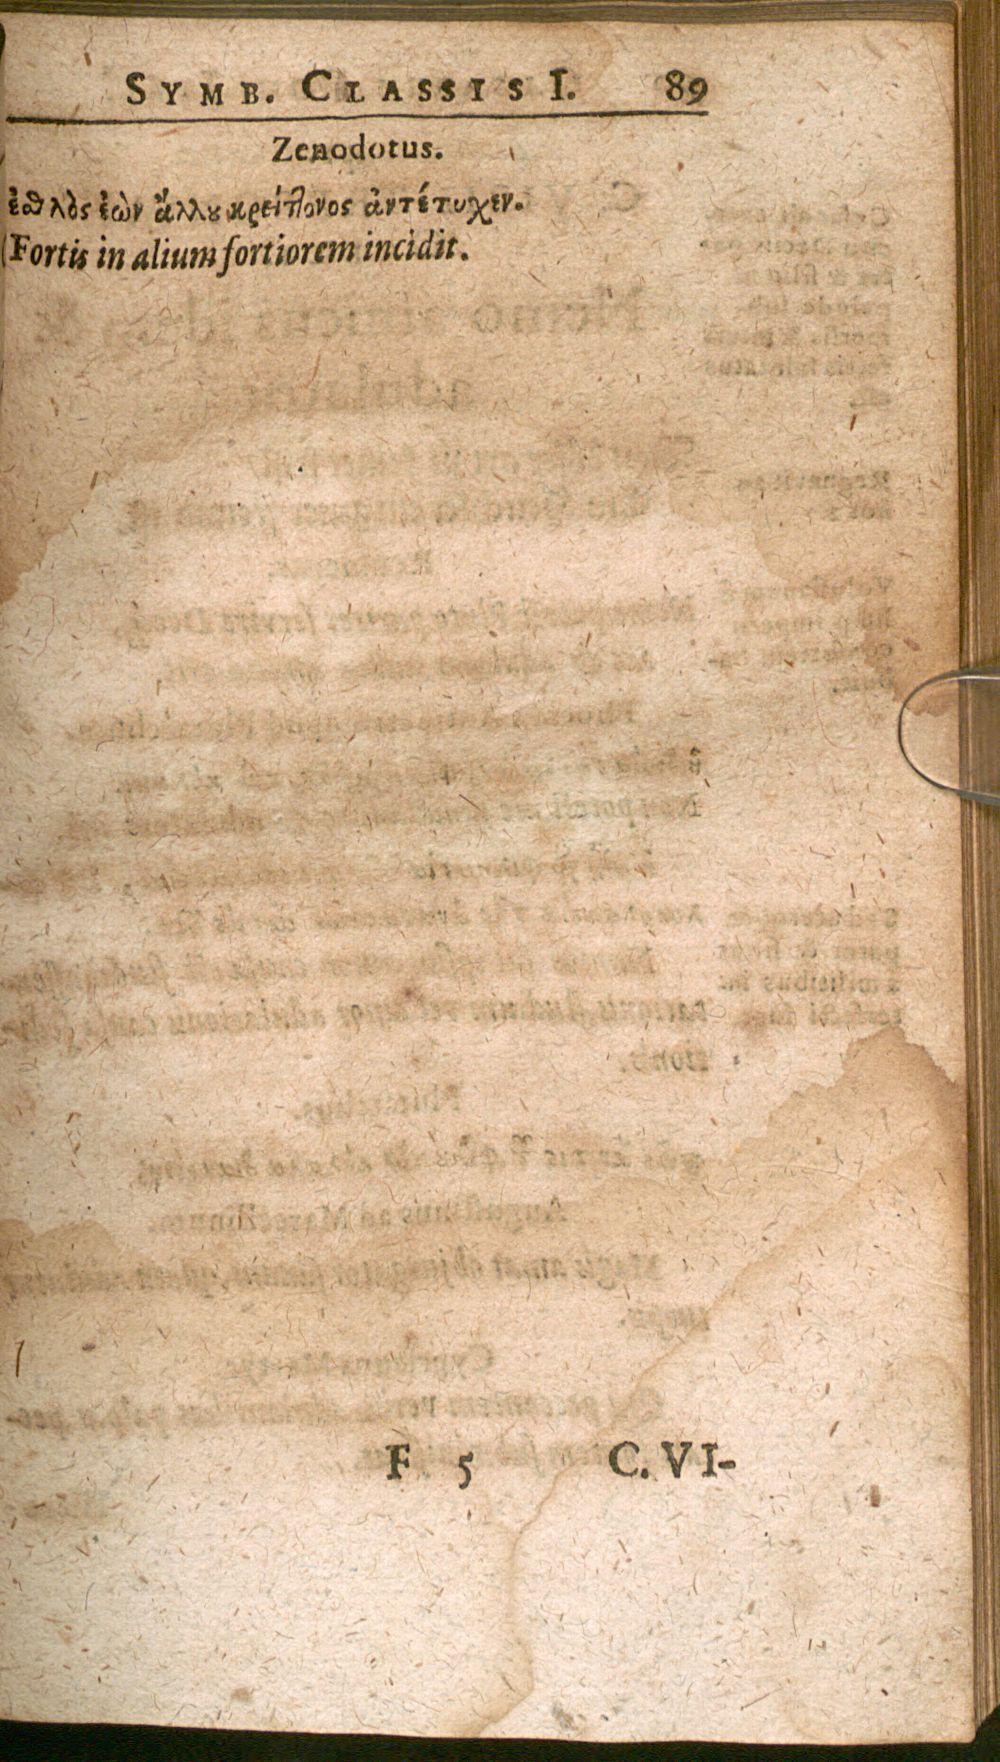 SYMB. CLASSIS I. 89
Zenodotus.
ἐσθλὸς ἐὼν ἄλλου κρείττονος ἀντέτυχεν.
(Fortis in alium fortiorem incidit.
F 5 C. VI-